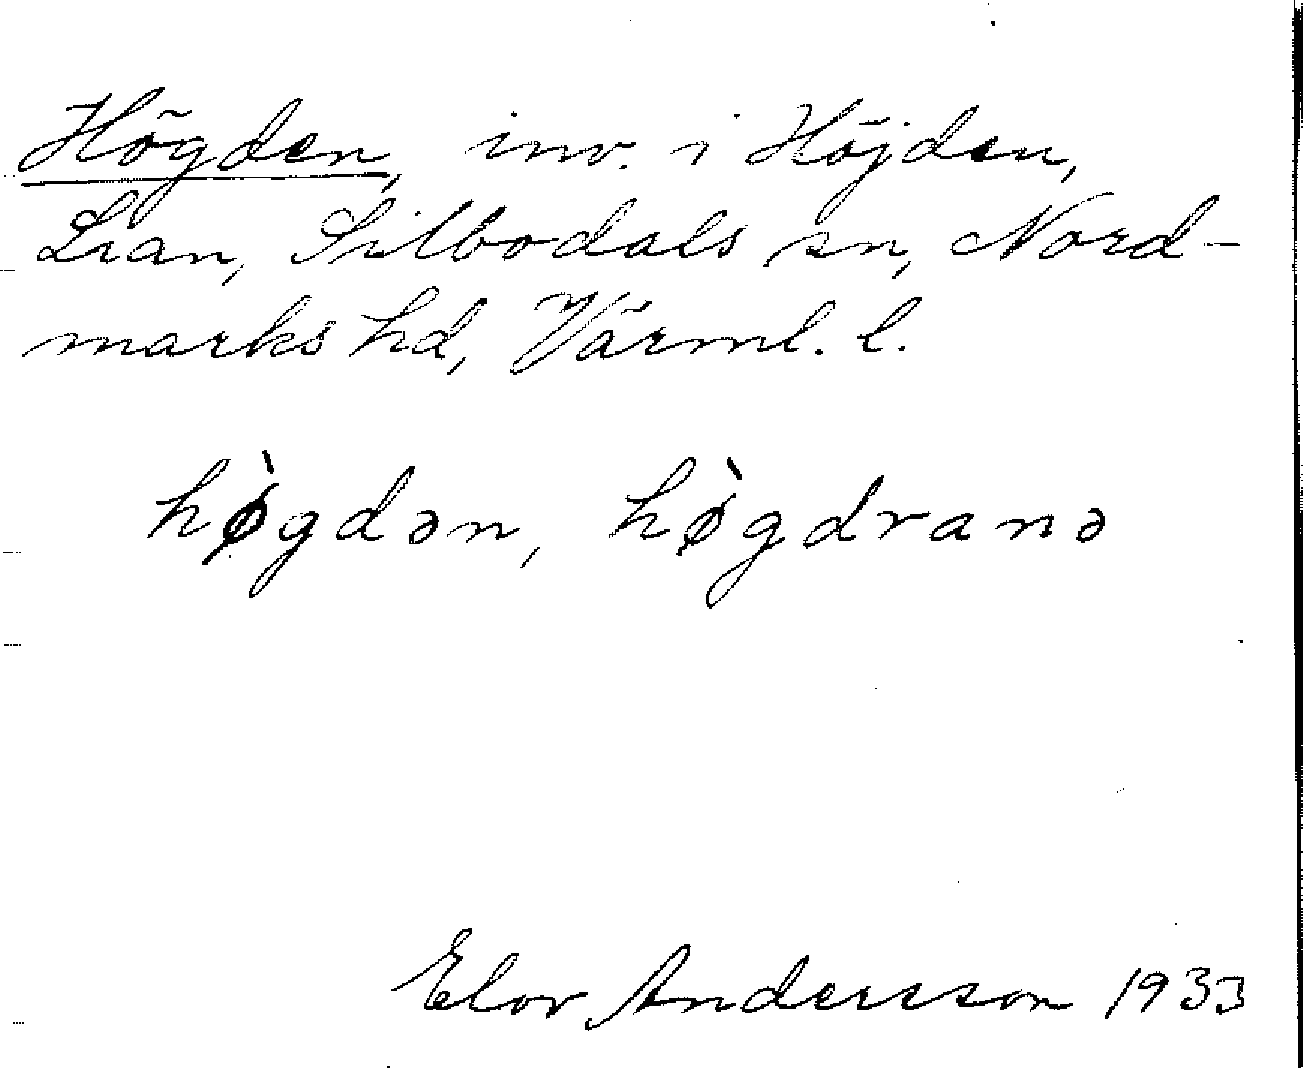 Högden, inv. i Höjden,
Lian, Silbodals sn, Nord-
marks hd, Värml. l.
hø̀gdən, hø̀gdranə
Elov Andersson 1933